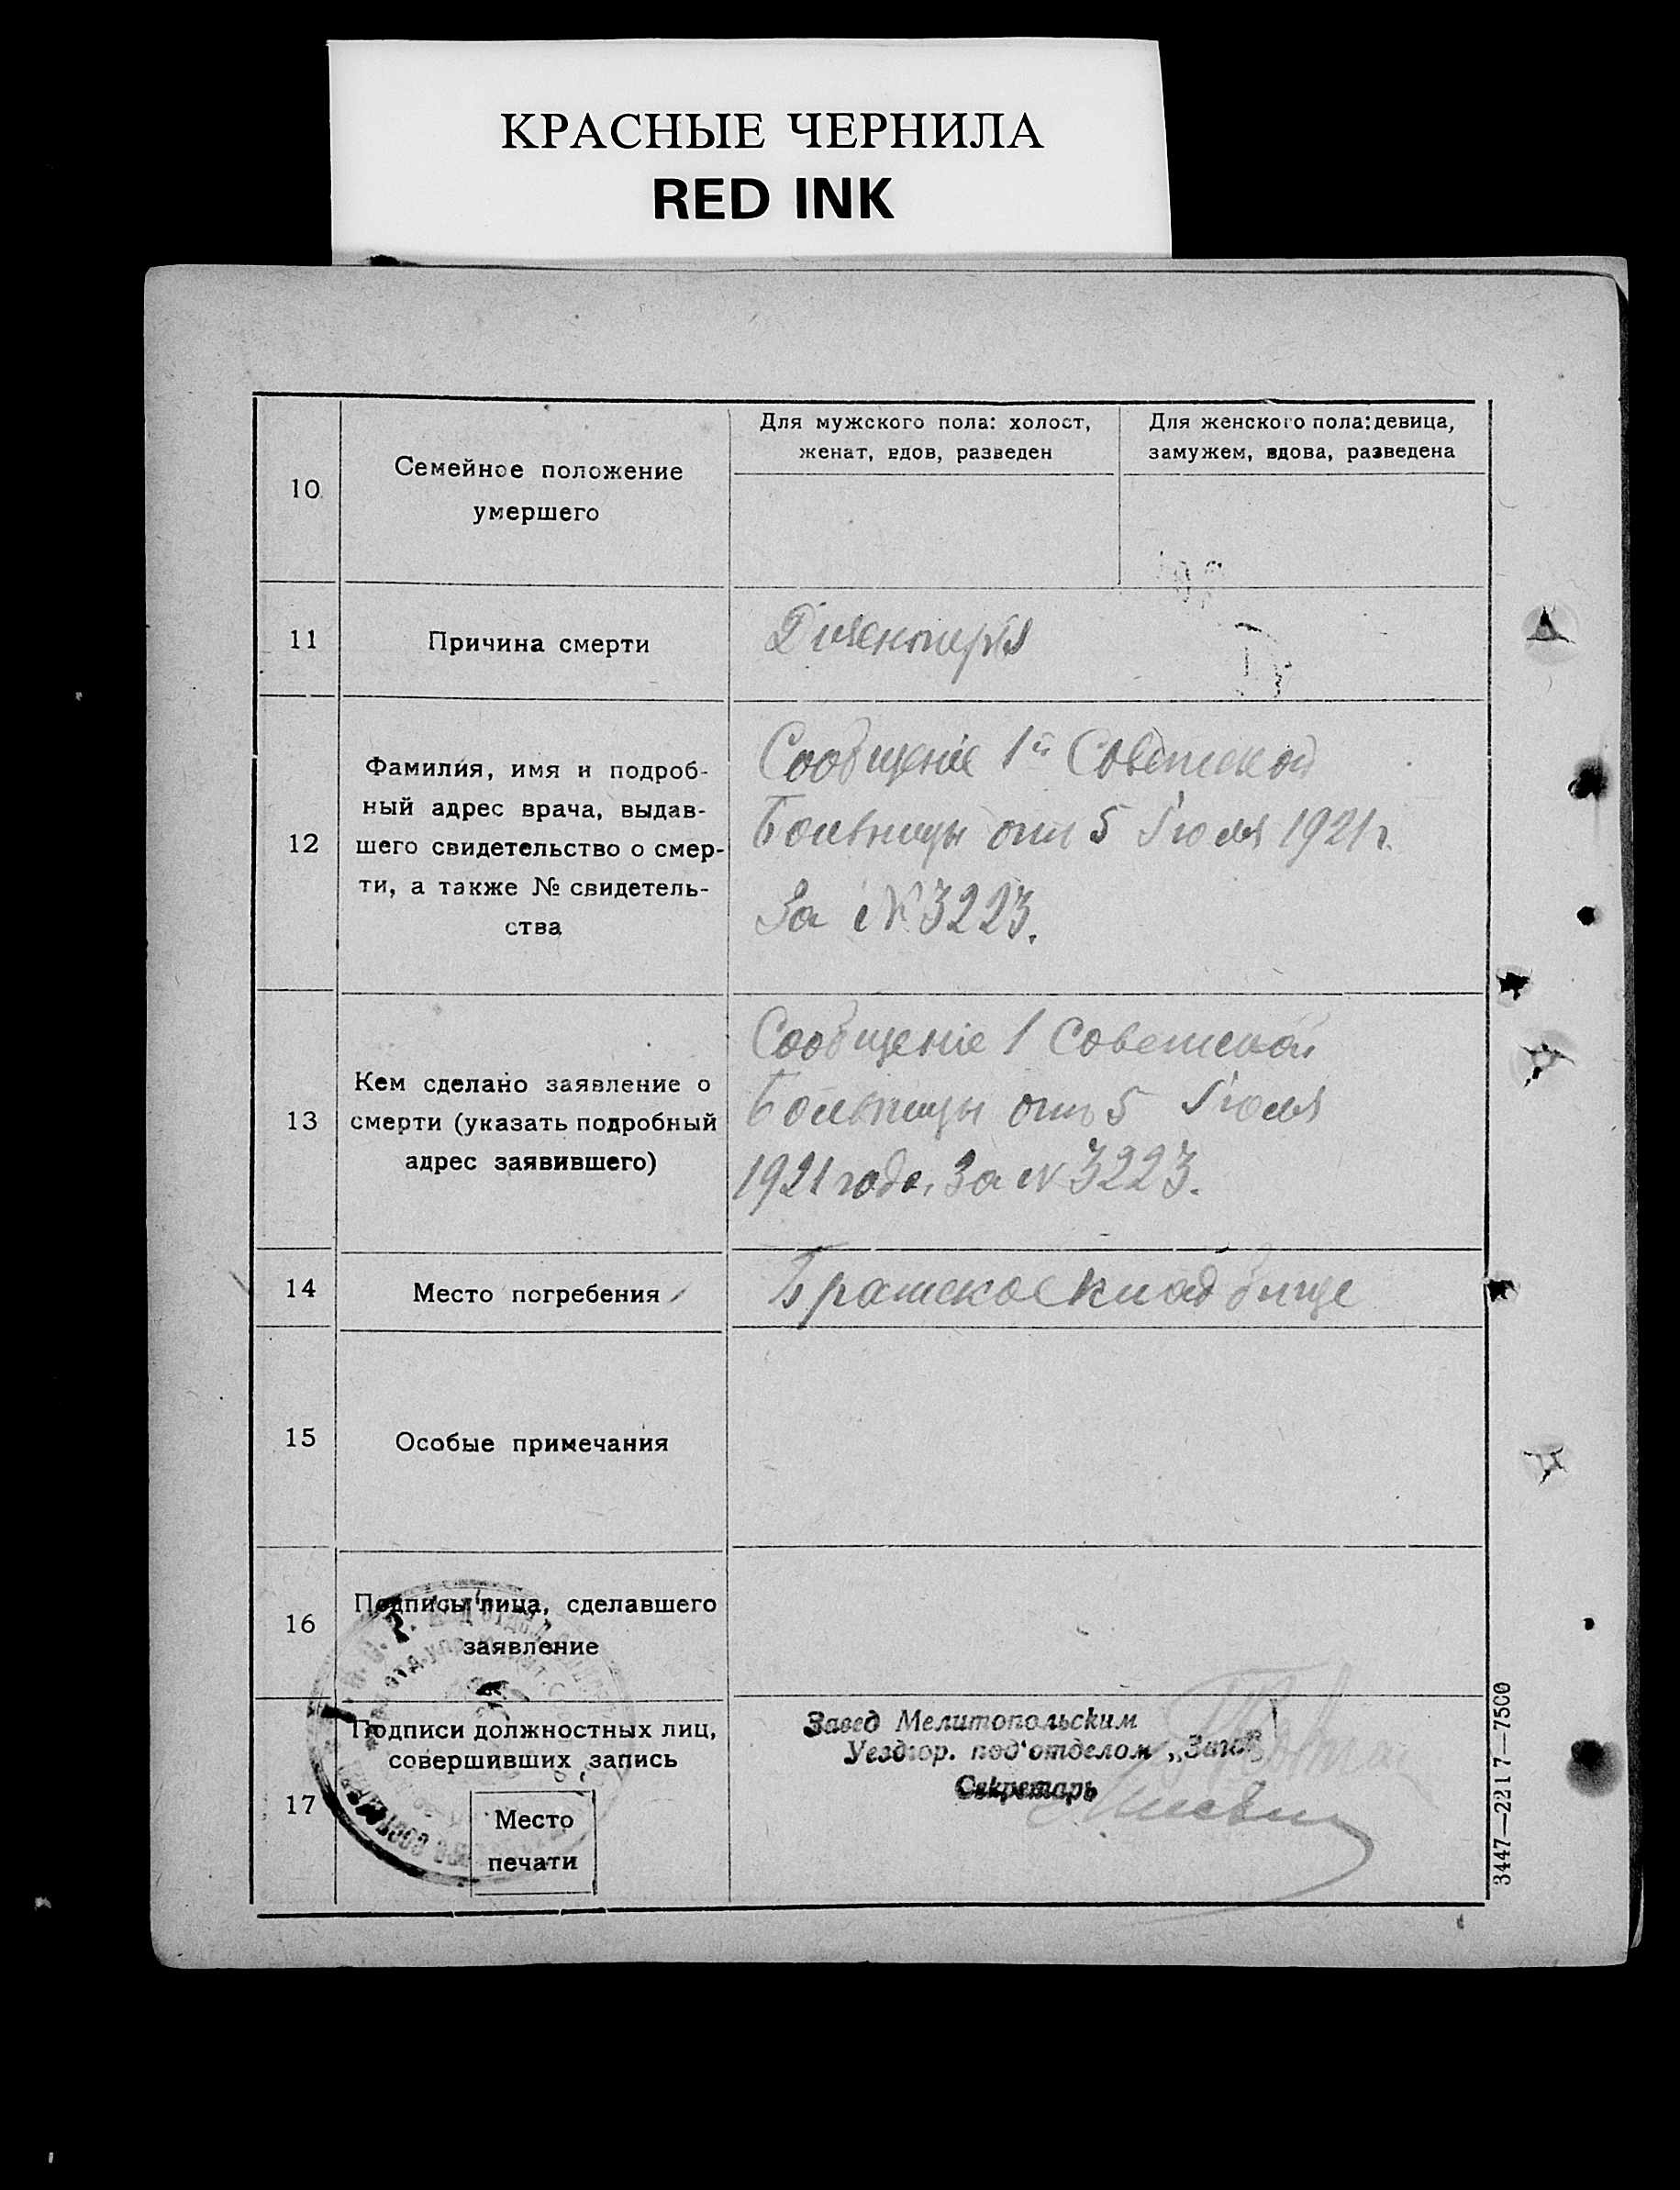 КРАСНЫЕ ЧЕРНИЛА
RED INK
10
Семейное положение
умершего
Для мужского пола: холост,
женат, вдов, разведен
Для женского пола: девица,
замужем, вдова, разведена
11
Причина смерти
Дизентерія
12
Фамилия, имя и подроб-
ный адрес врача, выдав-
шего свидетельство о смер-
ти, а также № свидетель-
ства
Сообщеніе 1й Советской
Больницы от 5 Іюля 1921 г.
За № 3223.
13
Кем сделано заявление о
смерти (указать подробный
адрес заявившего)
Сообщеніе 1 Советской
Больницы отъ 5 Іюля
1921 года, За № 3223.
14
Место погребения
Братское кладбище
15
Особые примечания
16
Подписы лица, сделавшего
заявление
17
Подписи должностных лиц,
совершивших запись
Место
печати
Завед Мелитопольским
Уездгор. под'отделом „Загс"
Секретарь
3447—2217—7500